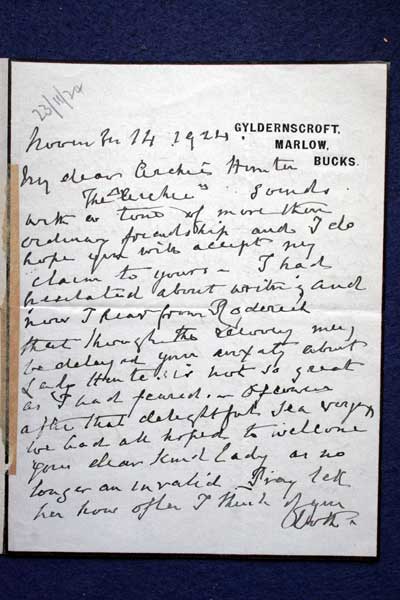 23/11/24
GYLDERNSCROFT,
MARLOW,
BUCKS.
Novembr 14 1924.
My dear Archie Hunter
The "Archie" Sounds
with a tone of more than
ordinary friendship and I do
hope you will accept my
claim to yours – I had
hesitated about writing and
now I hear from Roderick
that though the recovery may
be delayed your anxiety about
Lady Hunter is not so great
as I had feared. – Of course
after that delightful Sea voyage
we had all hoped to welcome
your dear kind lady as no
longer an invalid Pray tell
her how often I think of you